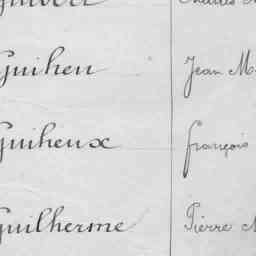 Guihen Jean M
Guiheux François
Guilherme Pierre M